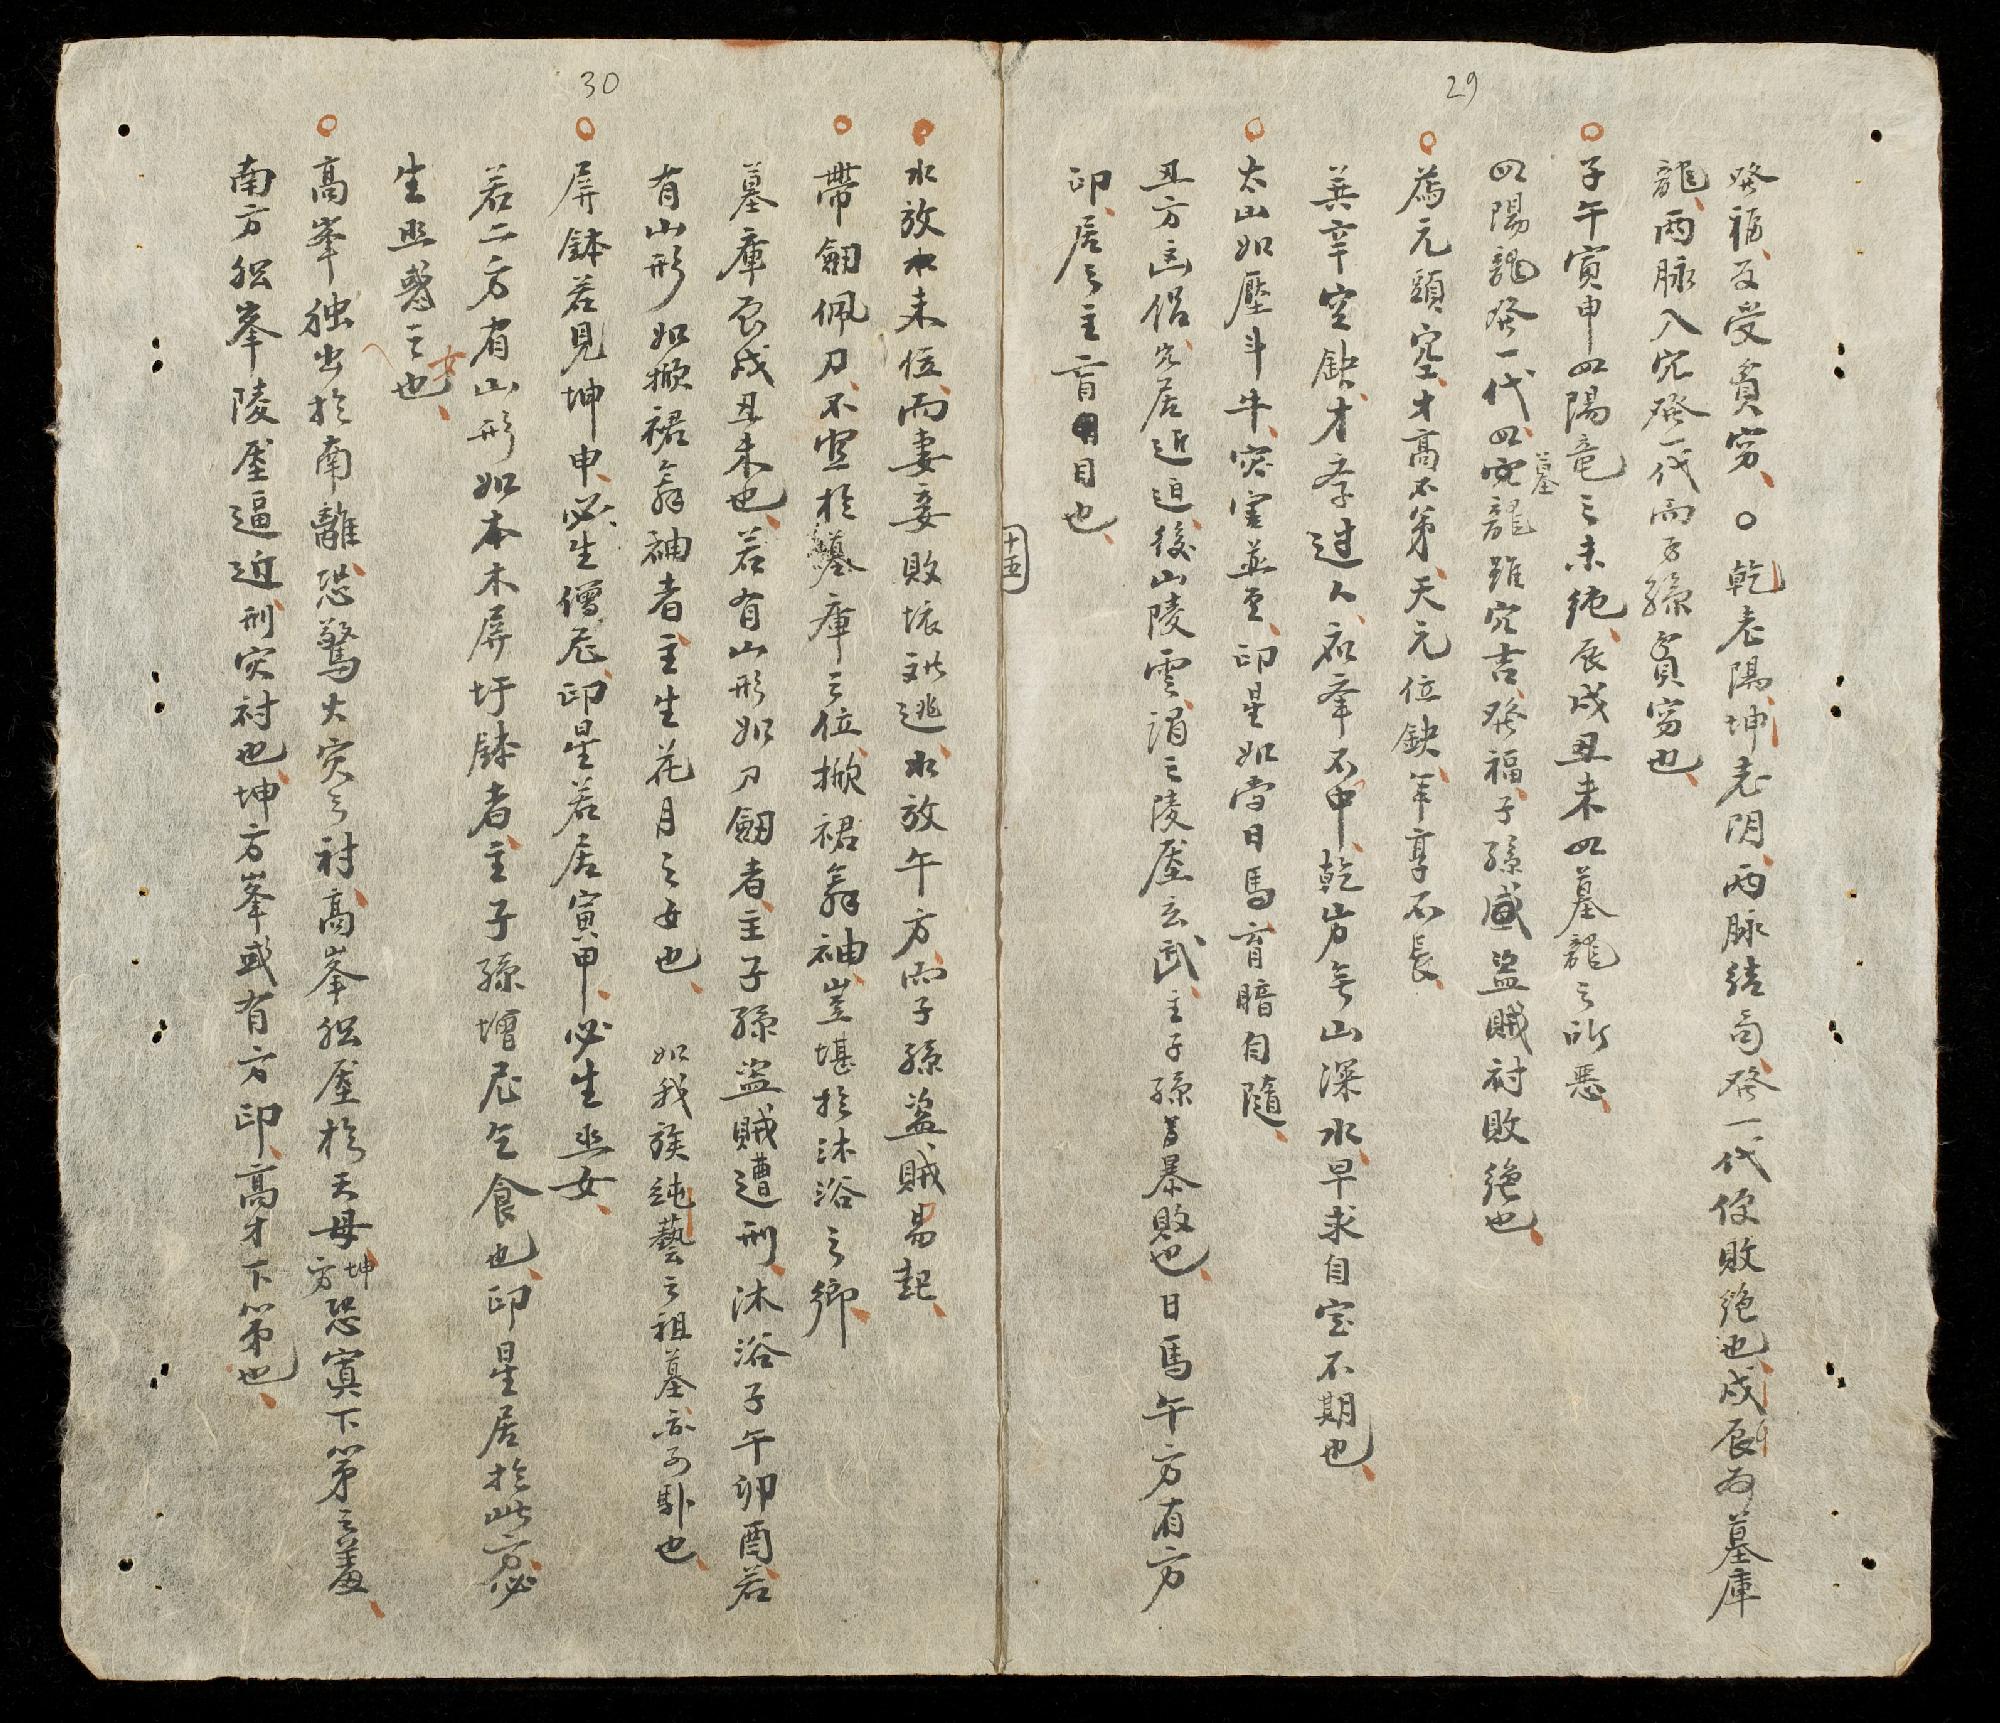 29
發福、反受貧窮、○乾老陽、坤老阴、兩脉結局、發一代後敗絶也、戌辰為墓庫
龍、兩脉入穴、發一代而子孫貧窮也、
○子午寅申四陽竜之未純、辰戌丑未四墓龍之所悪、
四陽龍發一代、四墓龍雖穴吉、發福、子孫盛、盗賊討敗絶也、
○為元頭空、才高不第、天元位缺、年享不長、
巽辛空缺、才李过人、名峯不中、乾方無山深水、早求自宝不期也、
○太山如壓斗牛、突害並至、印星如当日馬、盲暗自隨、
丑方
居近迫後山陵雲、謂之陵壓玄武、主子孫暴敗也、日馬午方有方
印、居之主盲目也、
十五
30
○水放未位、而妻妾敗
逃、水放午方、而子孫盗賊易起、
○帶劔佩刀、不宜於墓庫之位、掀裙翕袖、豈堪於沐浴之鄉、
墓庫辰戌丑未也、若有山形如刀劔者、主子孫盗賊遭刑、沐浴子午卯酉、若
有山形如掀裙翕袖者、主生花月之女也、如我族純藝之祖墓
也
○屏鉢若見坤申、必生僧尼、印星若居寅甲、必生巫女、
若二方有山形如本木屏圩鉢者、主子孫增尼乞食也、印星居於此方、必
生巫
之女也、
○高峯独出於南離、恐驚火灾之討、高峯
壓於天母坤方、恐寞下第之羞、
南方
峯陵壓逼近、刑灾討也、坤方峯或有方印、高才下第也、